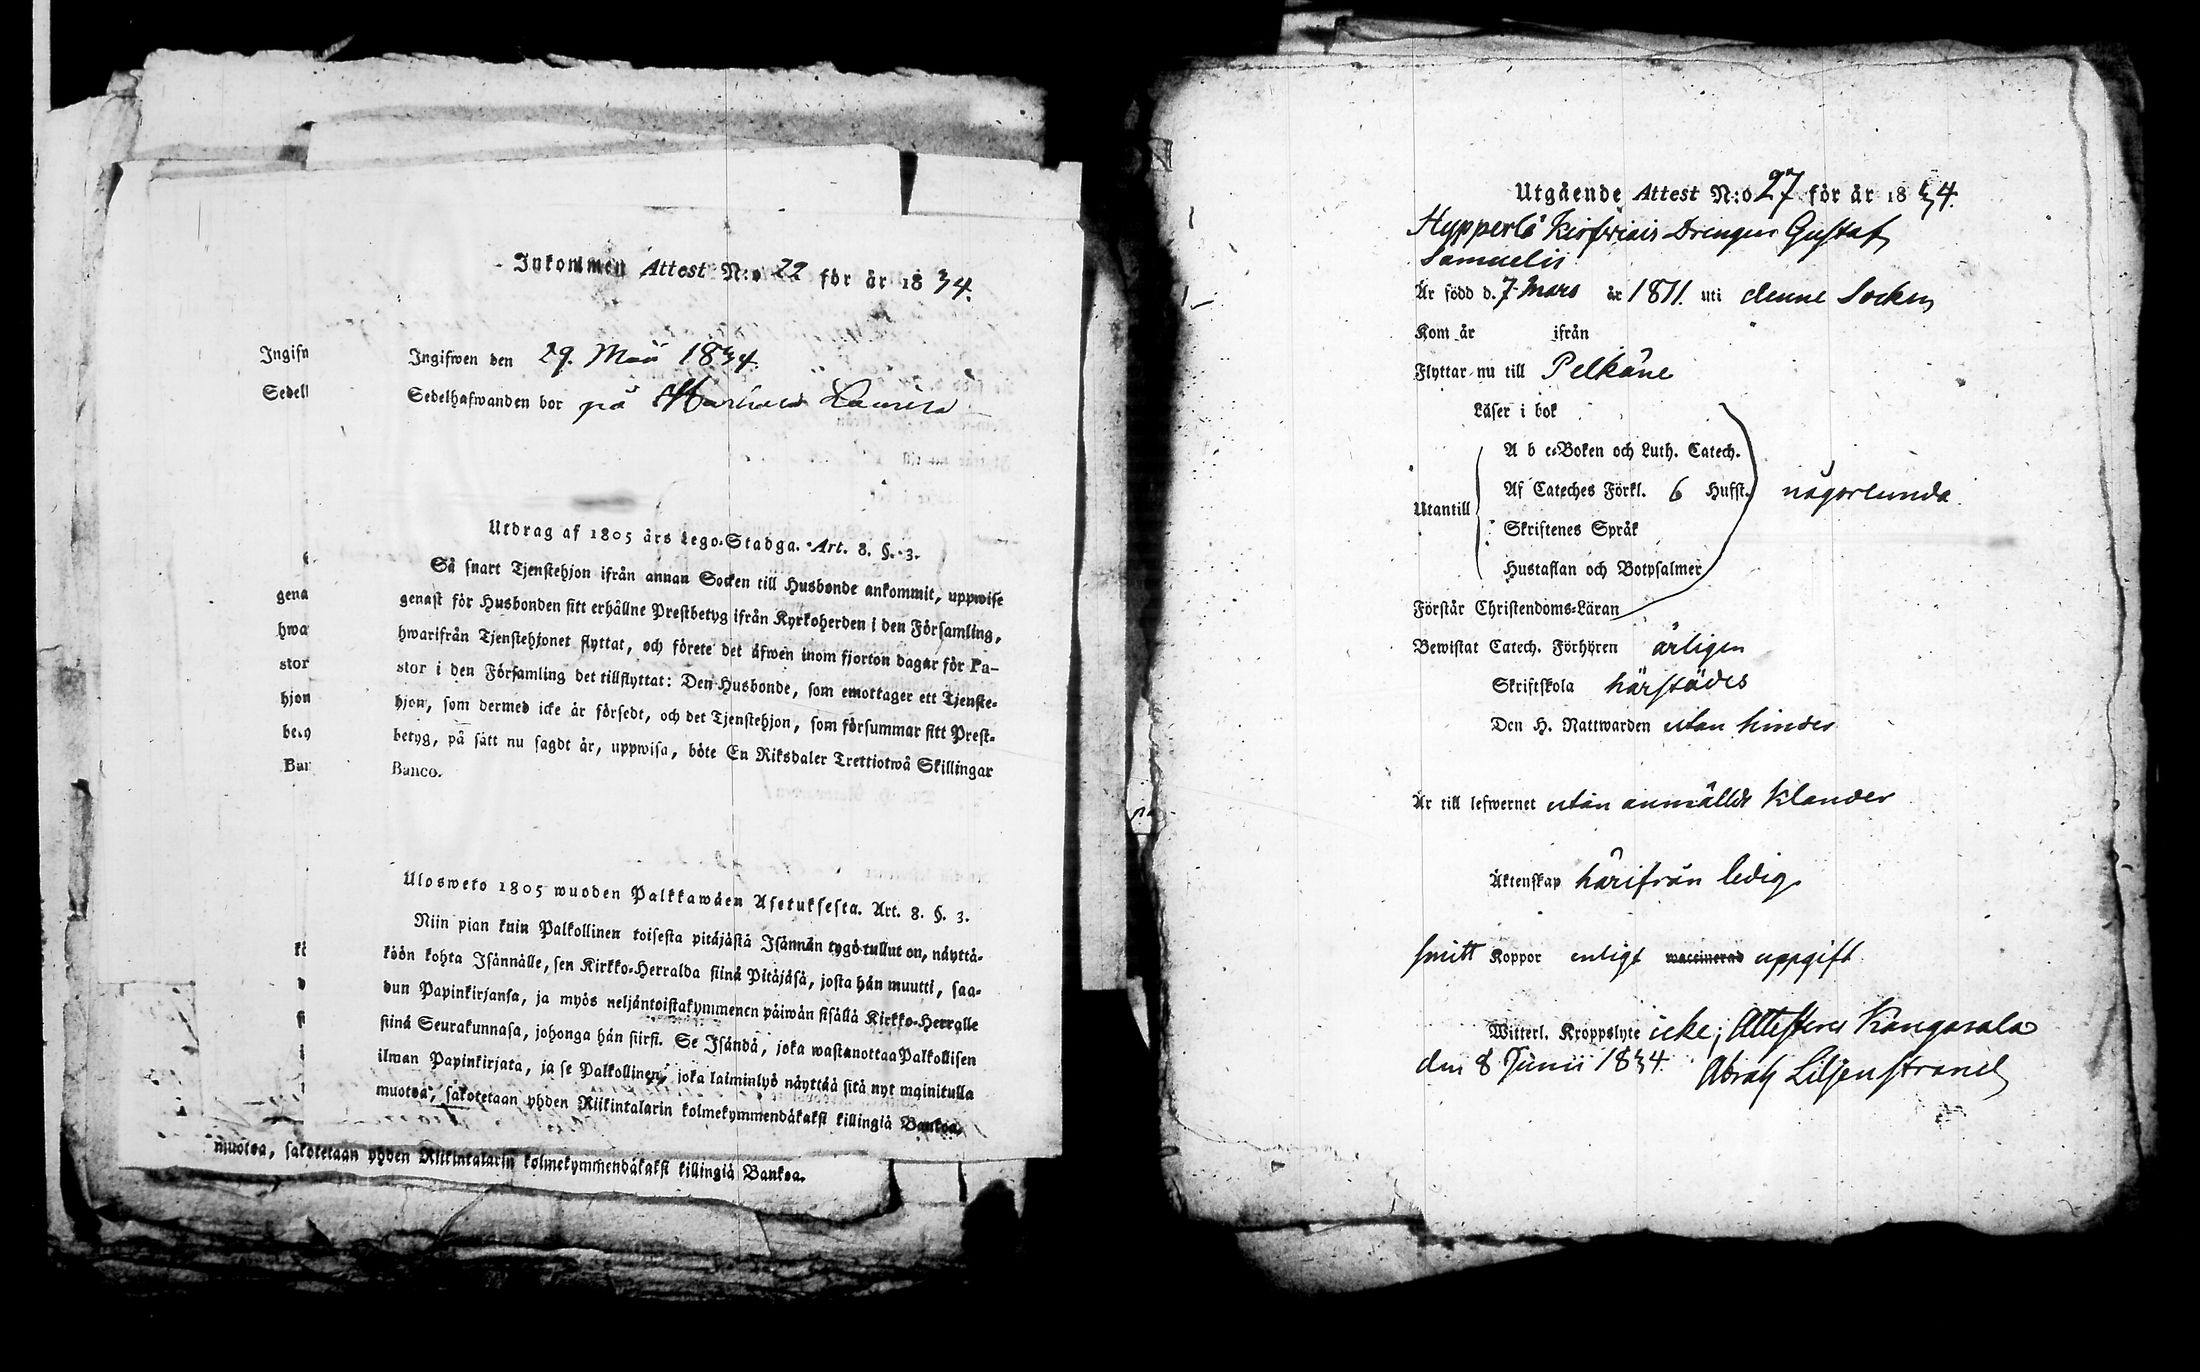 Inkommen Attest N:o 22 för år 1834.
Ingifw
Ingifwen den 29. Maii 1834.
Sedell
Sedelhafwanden bor på
Utdrag af 1805 års Lego-Stadga. Art. 8. §. 3.
Så snart Tjenstehjon ifrån annan Socken till Husbonde ankommit, uppwise
gena
genast för Husbonden sitt erhållne Prestbetyg ifrån Kyrkoherden i den Församling,
hwa
hwarifrån Tjenstehjonet flyttat, och förete det äfwen inom fjorton dagar för Pa-
stor
stor i den Församling det tillflyttat: Den Husbonde, som emottager ett Tjenste-
hjon
hjon, som dermed icke är försedt, och det Tjenstehjon, som försummar sitt Prest-
bety
betyg, på sätt nu sagdt är, uppwisa, böte En Riksdaler Trettiotwå Skillingar
Ban
Banco.
Ulosweto 1805 wuoden Palkkawäen Asetuksesta. Art. 8. §. 3.
Niin pian kuin Palkollinen toisesta pitäjästä Isännän tygö tullut on, näyttä-
köön kohta Isännälle, sen Kirkko-Herralda siinä Pitäjäsä, josta hän muutti, saa-
dun Papinkirjansa, ja myös neljäntoistakymmenen päiwän sisällä Kirkko-Herralle
siinä Seurakunnasa, johonga hän siirsi. Se Isändä, joka wastanottaa Palkollisen
ilman Papinkirjata, ja se Palkollinen, joka laiminlyö näyttää sitä nyt mainitulla
muotoa, sakotetaan yhden Riikintalarin kolmekymmendäkaksi killingiä Bankoa.
muotoa, sakotetaan yhden Riikintalarin kolmekymmendäkaksi killingiä Bankoa.
Utgående Attest N:o 27 för år 1834.
Drengen Gustaf
Samuelis
Är född d. 7 Mars år 1811. uti denne Socken
Kom år ifrån
Flyttar nu till Pelkäne
Läser i bok
A b c-Boken och Luth. Catech.
Af Cateches Förkl. 6 Hufst. någorlunda
Utantill
Skriftenes Språk
Hustaflan och Botpsalmer
Förstår Christendoms-Läran
Bewistat Catech. Förhören årligen
Skriftskola härstädes
Den H. Nattwarden utan hinder
Är till lefwernet utan anmäldt klander
Äktenskap härifrån ledig
haft Koppor enligt waccinerad uppgift
Witterl. Kroppslyte icke; Attesterer Kangasala
den 8 Junii 1834. Abrah Liljenstrand